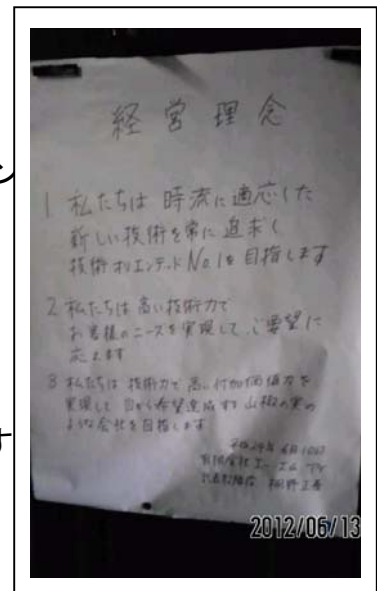 経営理念
1 私たちは 時流に適応した
新しい技術を常に追求し
技術オリエンテッドNo1を目指します
2 私たちは高い技術力で
お客様のニーズを実現して、ご要望に
応えます
3 私たちは 技術力で高い付加価値力を
実現して 自から希望達成する山椒の実の
ような会社を目指します
6月10日
有限会社エー・エム
2012/06/13